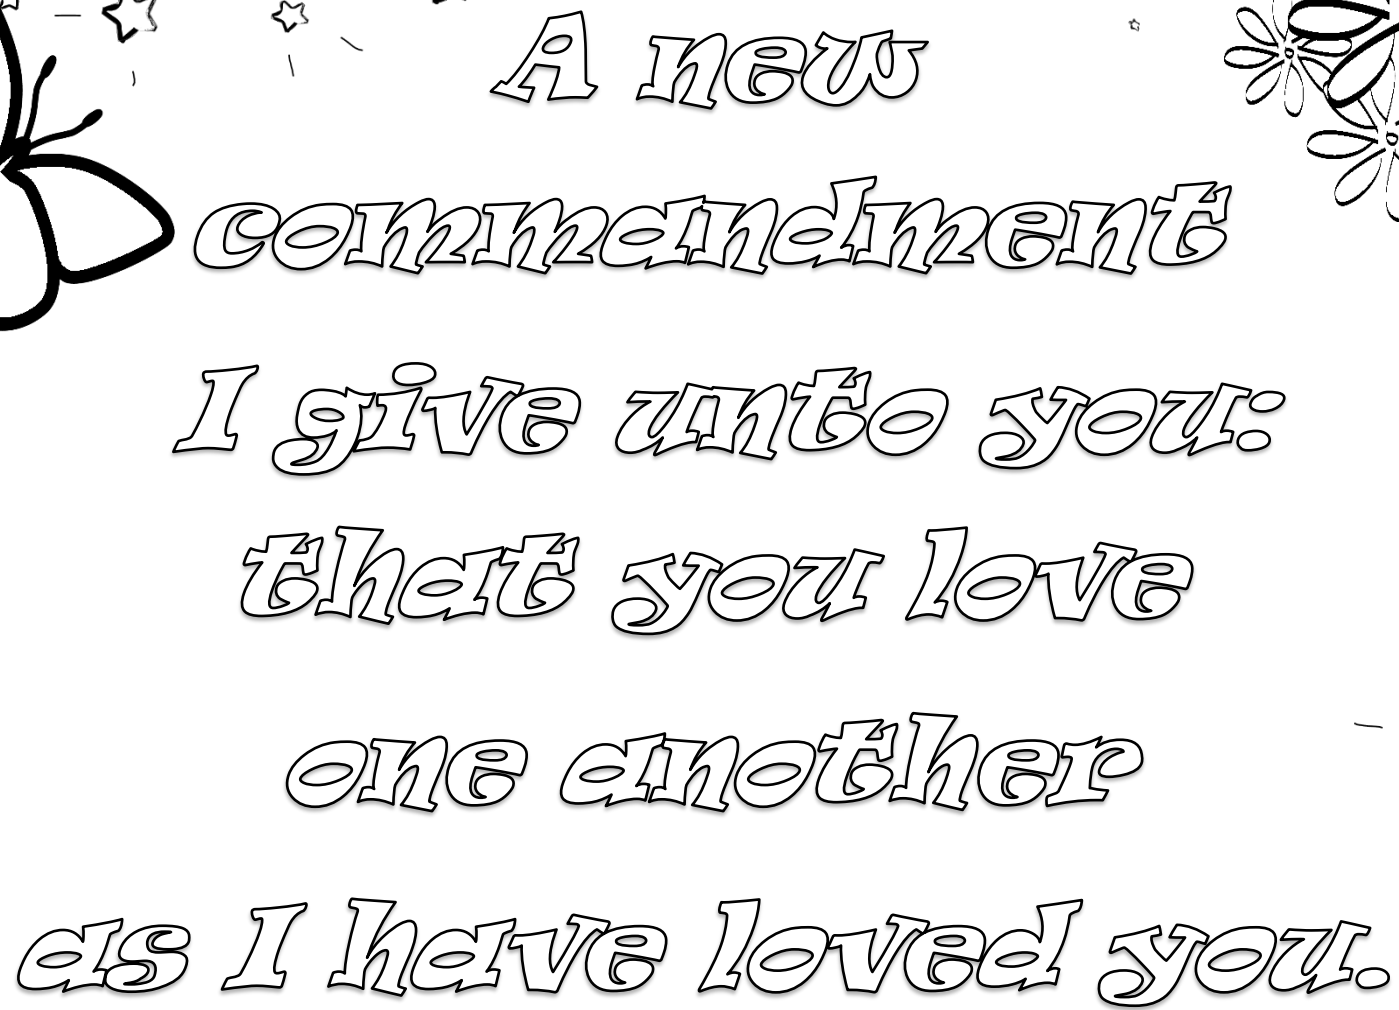 A new
commandment
I give unto you:
that you love
one another
as I have loved you.